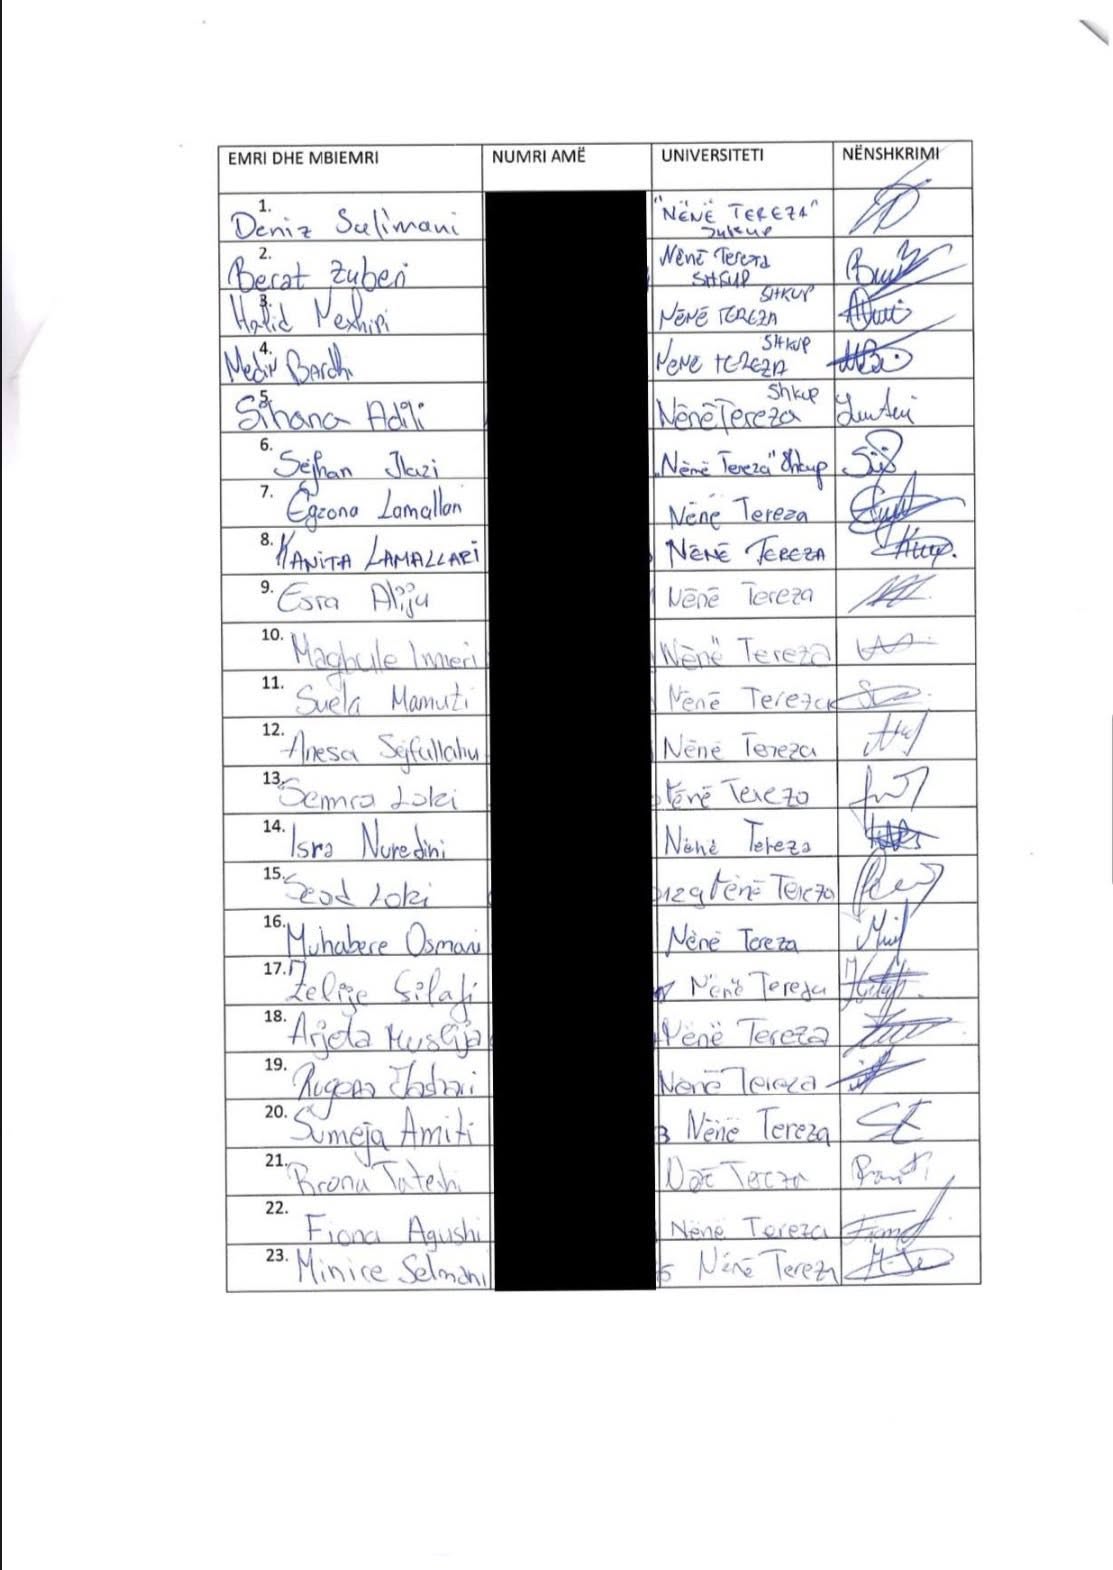 EMRI DHE MBIEMRI NUMRI AMË UNIVERSITETI NËNSHKRIMI
1. Deniz Sulimani "NËNË TEREZA"
2. Berat Zuberi Nënë Tereza SHKUP
3. Halid Mexhipi NËNË TEREZA SHKUP
4. Medin Bardhi NËNE TEREZA SHKUP
5. Sihana Adili Nënë Tereza Shkup
6. Sejhan Ilazi "Nënë Tereza" Shkup
7. Egzona Lamallari Nënë Tereza
8. KANITA LAMALLARI NËNË TEREZA
9. Esra Aliju Nënë Tereza
10. Magbule Imeri Nënë Tereza
11. Suela Mamuti Nënë Tereza
12. Anesa Sejfullahu Nënë Tereza
13. Semra Loki Nënë Tereza
14. Isra Nuredini Nënë Tereza
15. Sead Loki Nënë Tereza
16. Muhabere Osmani Nënë Tereza
17. Zelije Silaji Nënë Tereza
18. Arjeta Muslija Nënë Tereza
19. Jashari Nënë Tereza
20. Sumeja Amiti Nënë Tereza
21. Brona Tateshi Tereza
22. Fiona Agushi Nënë Tereza
23. Minire Selmani Nënë Tereza